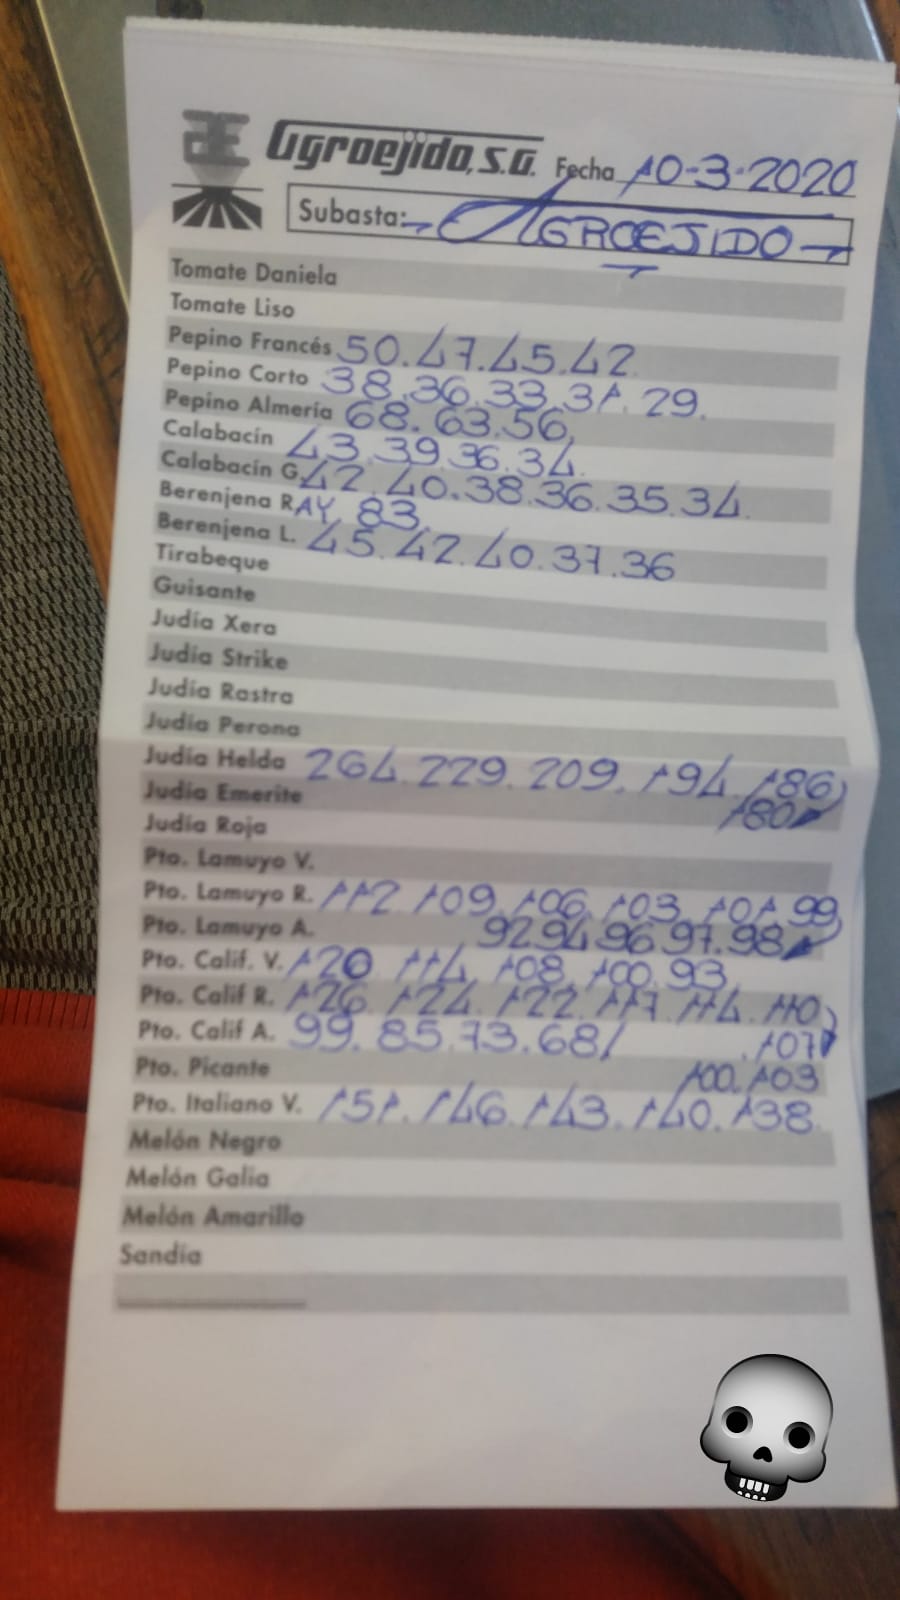 Agroejido, S.A. Fecha 10-3-2020
Subasta: AGROEJIDO
Tomate Daniela
Tomate Liso
Pepino Francés 50.47.45.42
Pepino Corto 38.36.33.31.29.
Pepino Almería 68.63.56.
Calabacín 43.39.36.34.
Calabacín G. 42.40.38.36.35.34.
Berenjena RAY. 83.
Berenjena L. 45.42.40.37.36
Tirabeque
Guisante
Judía Xera
Judía Strike
Judía Rastra
Judía Perona
Judía Helda 264.229.209.194.186
Judía Emerite 180
Judía Roja
Pto. Lamuyo V.
Pto. Lamuyo R. 112.109.106.103.101.99
Pto. Lamuyo A. 92.94.96.97.98
Pto. Calif. V. 120.114.108.100.93
Pto. Calif R. 126.124.122.117.114.110
Pto. Calif A. 99.85.73.68/ .107
Pto. Picante 100.103
Pto. Italiano V. 151.146.143.140.138.
Melón Negro
Melón Galia
Melón Amarillo
Sandía